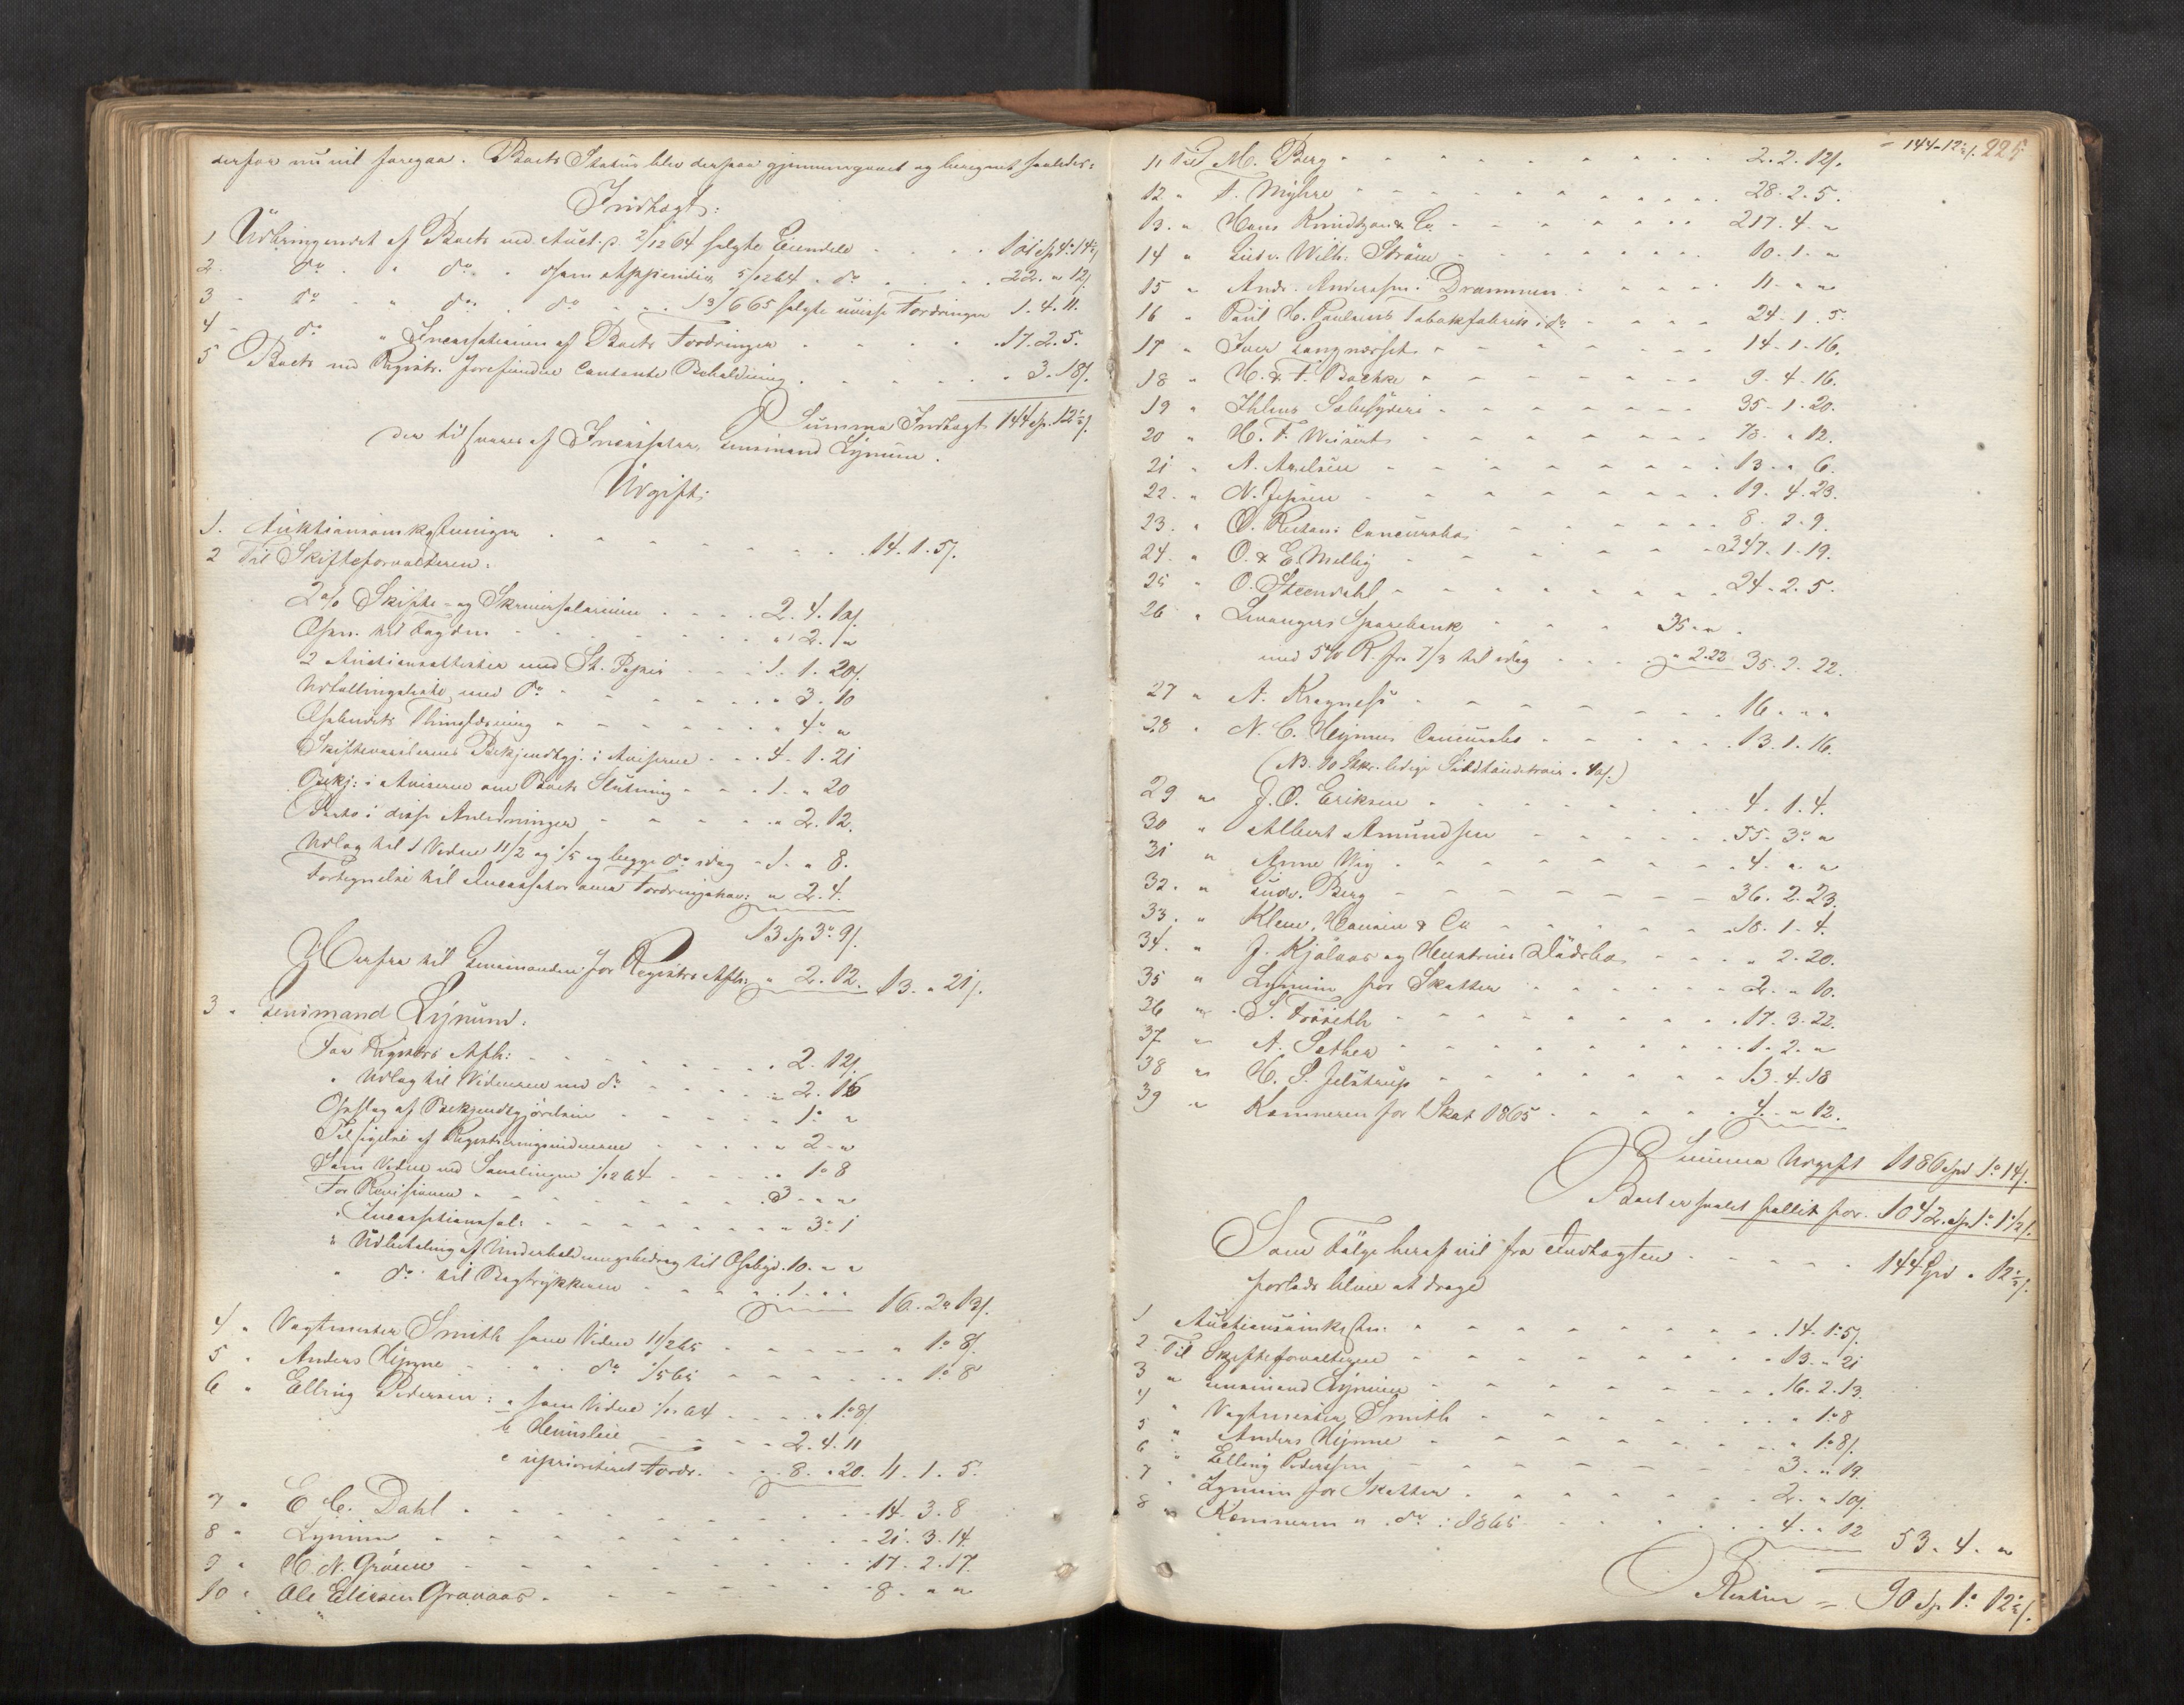 derfor nu vil foregaa. Boets Status blev derpaa gjennemgaaet og beregnet saaledes:
Indtægt:
1 Udbringendet af Boets ved Auct. d. 2/12 64 solgte Eiendele - - - 101 sp 4 - 14½
2. do - " do - 5/12 64 - do - - - 22. " 12 s.
3 - do - " do. do - - 13/6 65 solgte uvisse Fordringer 1. 4. 11.
4 - do " Incassationen af Boets Fordringer - - - 17. 2. 5.
5 Boets ved Registr. forefundne Contante Beholdning - - - " 3. 18 s.
Summa Indtægt 144 sp. " 12½ s.
der tilsvares af Incassator, Lensmand Lynum.
Udgift:
1. Auktionsomkostninger - - - 14. 1. 5 s.
2 Til Skifteforvalteren:
2 % Skifte- og Skriversalarium - - - 2. 4. 10 s.
til Fogden - - - " 2. "
2 Auctionsattester med St. Papir - - - 1. 1. 20 s.
med do - - - " 3. 10
Thinglæsning - - - " 4 - "
Bekjendtgj. i Aviserne - - - 4 - 1. 21
Bekj: i Aviserne om Boets Slutning - - - 1. " 20
Porto i disse Anledninger - - - " 2. 12.
Udlag til 1 Vidne 11/2 og 1/5 og begge do idag - 1. " 8.
Fortegnelse til Incassator over Fordringshav: " 2. 4.
13 sp 3 - 9 s.
Herfra til Lensmanden for Registrs Afh: " 2. 12. 13. " 21 s.
3 " Lensmand Lynum:
For Registrs Afh: - - - " 2. 12 s
" Udlag til Vidnerne ved do - - - " 2. 16
Opslag af Bekjendtgjørelsen - - - " 1 - "
Tilsigelse af Registreringsvidnerne - - - " 2 - "
Som Vidne ved Samlingen 1/12 64 - - - " 1 - 8
For Revisionen - - - 3 - " "
" Incassationssal: - - - " 3 - 1
" Udbetaling af Underholdningsbidrag til Opbyd. 10. " "
" do til Bogtrykkeren - - - 1. " " 16. 2 - 13 s.
4 " Vagtmester Smith som Vidne 11/2 65 - - - " 1 - 8 s.
5 " Anders Hynne - - do 1/5 65 - - - " 1 - 8
6 " Elling Pedersen: a som Vidne 1/12 64 - - - " 1 - 8 s.
b Huusleie - - - 2. 4. 11
c uprioriteret Fordr. - - 8. " 20. 11. 1. 5.
7 " E. C. Dahl - - - 14. 3. 8
8 " Lynum - - - 21. 3. 14.
9 " C. N. Grönn - - - 17. 2. 17.
10 " Ole Ellersen Gravaas - - - 8. " "
= 144 - 12½ s. 225
11 Til M. Berg - - - 2. 2. 12 s.
12 " T. Myhre - - - 28. 2. 5.
13. " Hans Knudtzon & Co - - - 217. 4. "
14 " Ludv. Wilh. Ström - - - 10. 1. "
15 " Andr. Anderssen. Drammen - - - 11. " "
16 " Paul H. Paulsens Tobaksfabrik i do - - - 24. 1. 5.
17 " Iver Langnæsset - - - 14. 1. 16.
18 " H. & F. Bachke - - - 9. 4. 16.
19 " Ihlens Sæbesyderi - - - 35. 1. 20.
20 " H. F. - - - 73. " 12.
21 " A. Axelsen - - - 13. " 6.
22. " N. Jepsen - - - 19. 4. 23.
23. " O. Concursbo - - - 8. 2. 9.
24. " O. & E. Melbÿ - - - 347. 1. 19.
25 " O. Steendahl - - - 24. 2. 5.
26 " Levangers Sparebank - - 35. " "
med 5 % R. fra 7/3 til idag - - - " 2. 22 35. 2. 22.
27 " A. Kragness - - - 16. " "
28 " N. C. Hynnes Concursbo - - - 13. 1. 16.
29 " J. O. Eriksen - - - 4. 1. 4.
30 " Albert Amundsen - - - 55. 3 - "
31 " Anne Wiig - - - 4. " "
32. " Ludv. Berg - - - 36. 2. 23.
33. " Klem, Hansen & Co - - - 18. 1. 4.
34. " J. Kjølaas og Hustrues Dödsbo - - - " 2. 20.
35 " Lynum for Skatter - - - 2. " 10.
36 " S. Fosseth - - - 17. 3. 22.
37 " A. Sæther - - - 1. 2. "
38 " H. S. Jelstrup - - - 13. 4. 18
39 " Kæmneren for Skat 1865 - - - 4. " 12.
Summa Udgift 1186 Spd 1 - 14 s.
Boet er saaledes fallit for 1042. Sp 1 - 1½ s.
Som Følge heraf vil fra Indtægten - - - 144 Spd " 12½ s.
forlods blive at drage
1 Auctionsomkostn: - - - 14. 1 - 5 s.
2 Til Skifteforvalteren - - - 13. " 21
3 " Lensmand Lynum - - - 16. 2. 13.
4 " Vagtmester Smith - - - " 1 - 8
5 " Anders Hynne - - - " 1 - 8 s.
6 " Elling Pedersen - - - 3. " 19.
7 " Lynum for Skatter - - - 2. " 10 s.
8 " Kæmneren " do : 1865 - - - 4. " 12 53. 4. "
Rester = 90 Sp 1 - 12½ s.